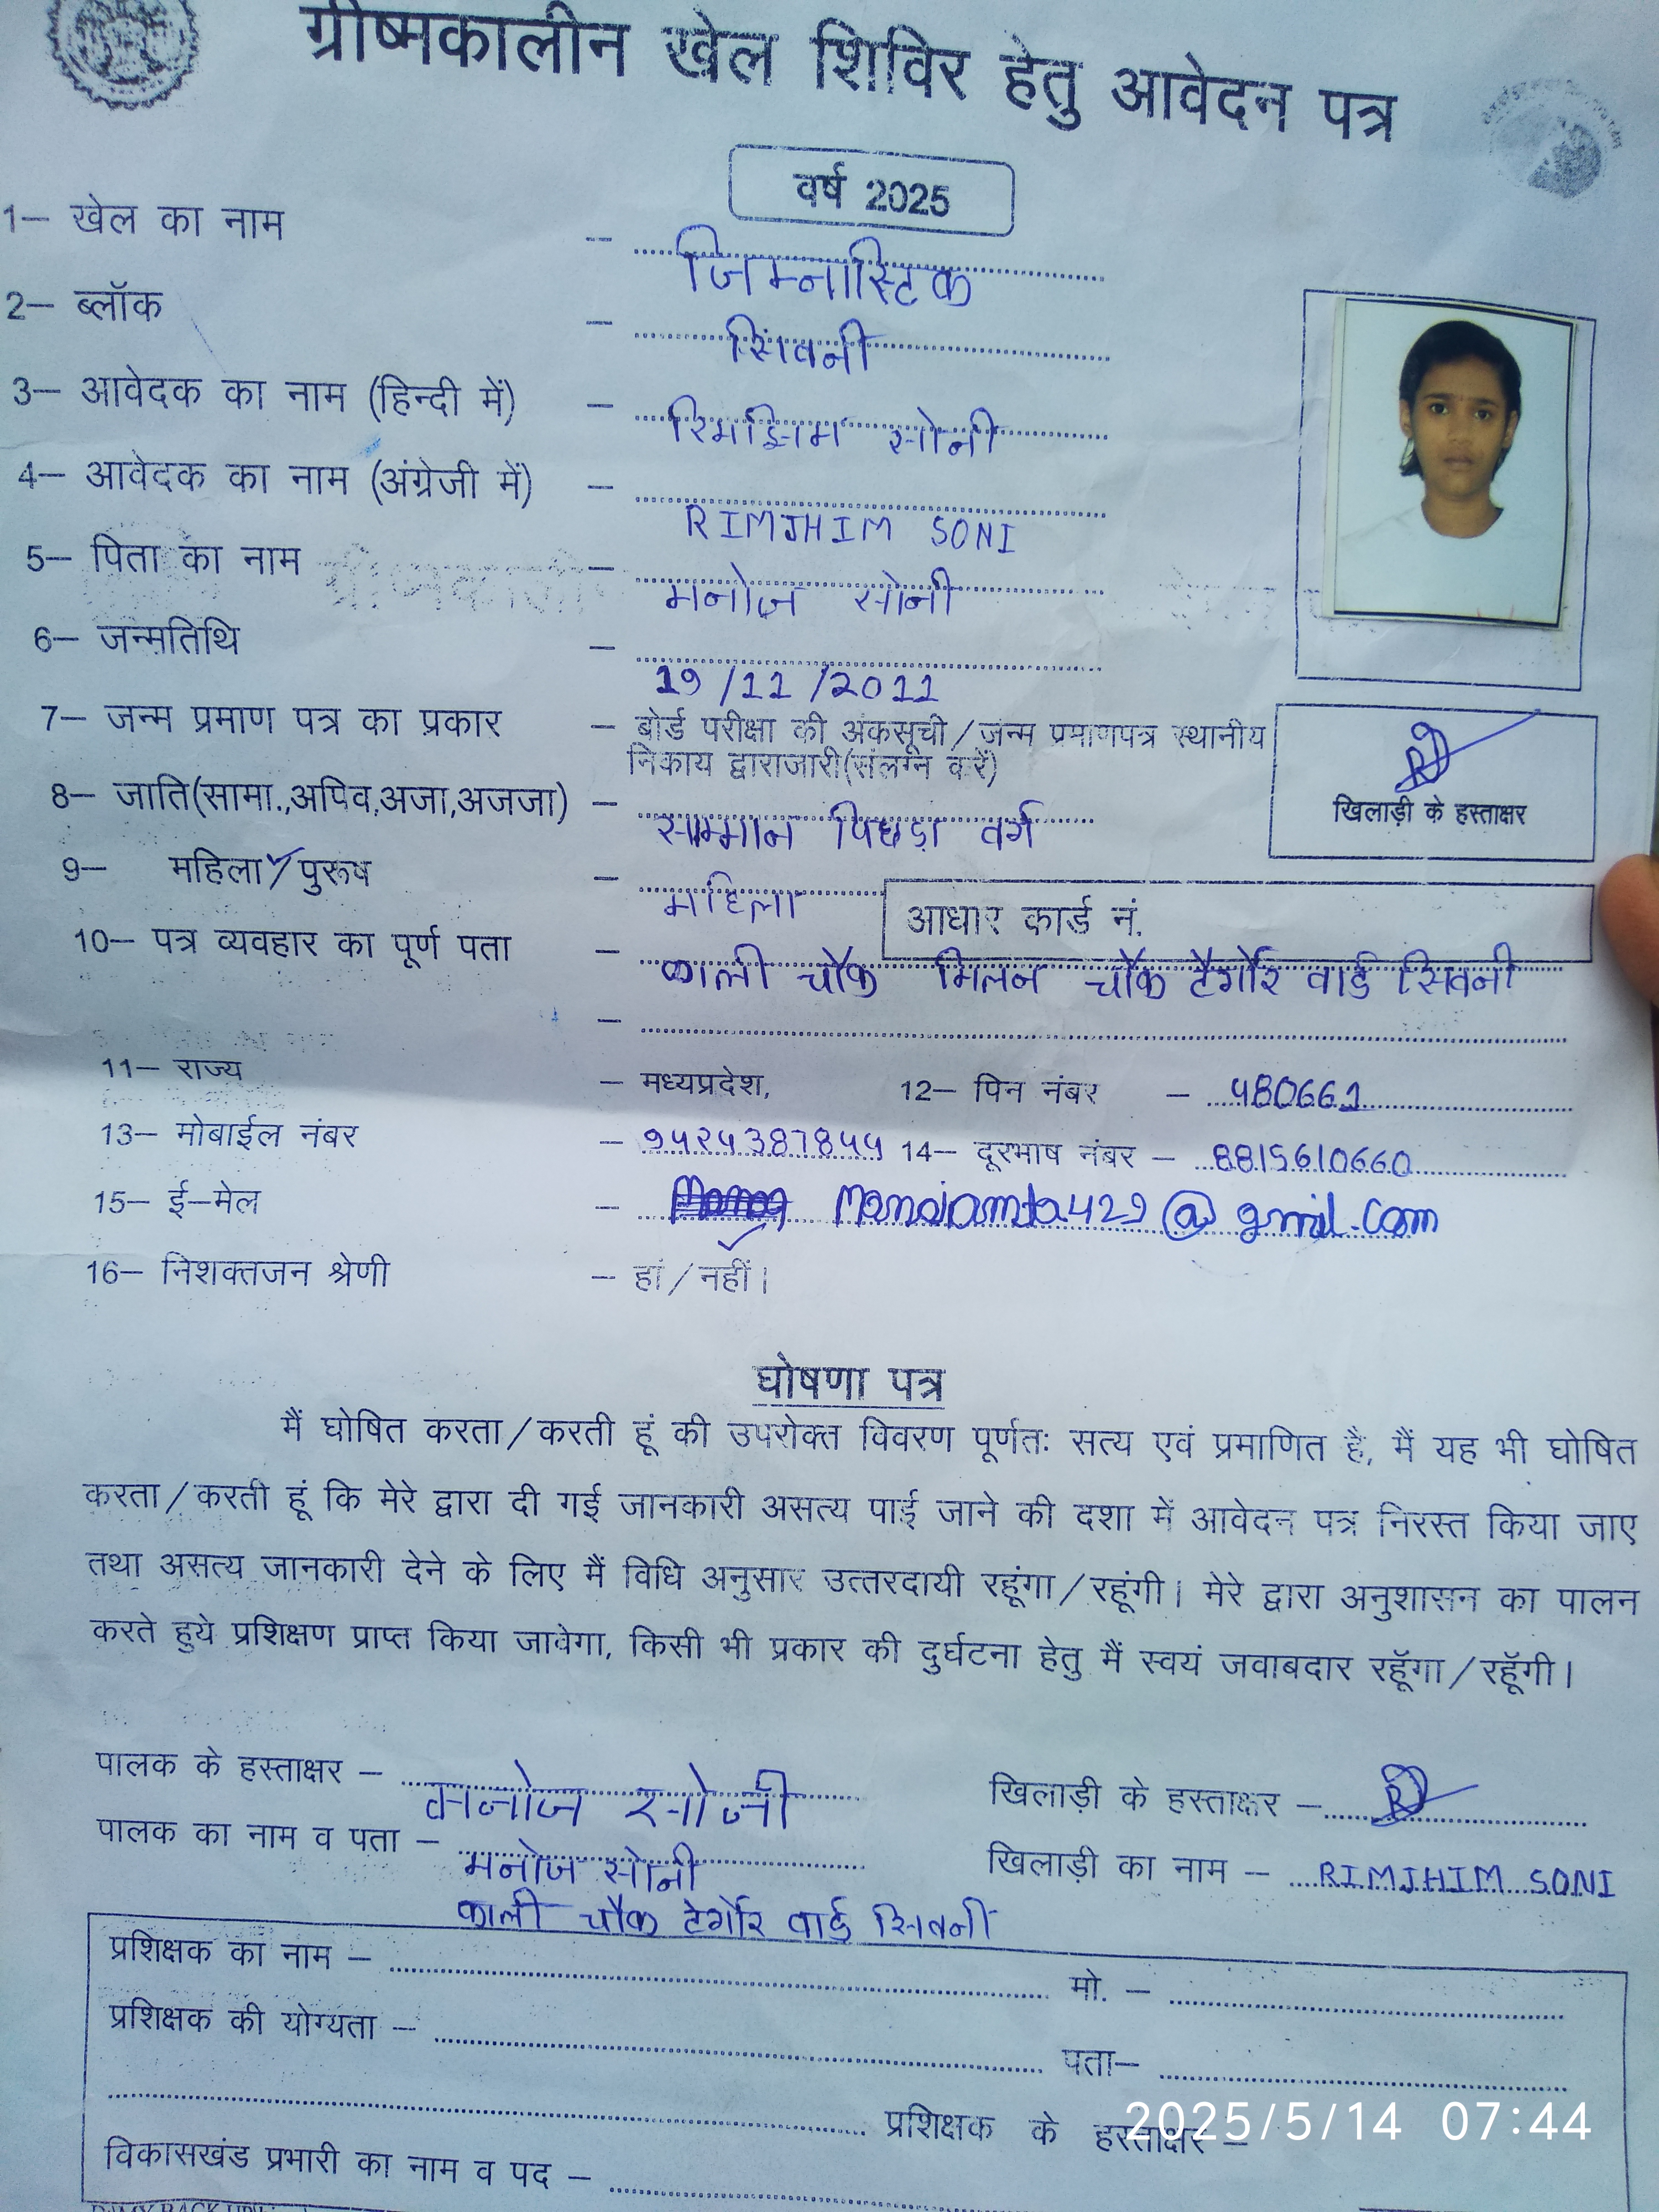 ग्रीष्मकालीन खेल शिविर हेतु आवेदन पत्र
वर्ष 2025
1– खेल का नाम – जिम्नास्टिक
2– ब्लॉक – सिंवनी
3– आवेदक का नाम (हिन्दी में) – रिमझिम सोनी
4– आवेदक का नाम (अंग्रेजी में) – RIMJHIM SONI
5– पिता का नाम – मनोज सोनी
6– जन्मतिथि – 19/11/2011
7– जन्म प्रमाण पत्र का प्रकार – बोर्ड परीक्षा की अंकसूची/जन्म प्रमाणपत्र स्थानीय
निकाय द्वाराजारी(संलग्न करें)
खिलाड़ी के हस्ताक्षर
8– जाति(सामा.,अपिव,अजा,अजजा) – साम्मान पिछड़ा वर्ग
9– महिला/पुरूष – महिला
आधार कार्ड नं.
10– पत्र व्यवहार का पूर्ण पता – काली चौक मिलन चौक टैगौर वार्ड सिवनी
–
11– राज्य – मध्यप्रदेश, 12– पिन नंबर – 480661
13– मोबाईल नंबर – 9424387844 14– दूरभाष नंबर – 8815610660
15– ई–मेल – @gmil.com
16– निशक्तजन श्रेणी – हां/नहीं।
घोषणा पत्र
मैं घोषित करता/करती हूं की उपरोक्त विवरण पूर्णतः सत्य एवं प्रमाणित है, मैं यह भी घोषित
करता/करती हूं कि मेरे द्वारा दी गई जानकारी असत्य पाई जाने की दशा में आवेदन पत्र निरस्त किया जाए
तथा असत्य जानकारी देने के लिए मैं विधि अनुसार उत्तरदायी रहूंगा/रहूंगी। मेरे द्वारा अनुशासन का पालन
करते हुये प्रशिक्षण प्राप्त किया जावेगा, किसी भी प्रकार की दुर्घटना हेतु मैं स्वयं जवाबदार रहूॅगा/रहूॅगी।
पालक के हस्ताक्षर – मनोज सोनी खिलाड़ी के हस्ताक्षर –
पालक का नाम व पता – मनोज सोनी खिलाड़ी का नाम – RIMJHIM SONI
काली चौक टेगौर वार्ड सिवनी
प्रशिक्षक का नाम – मो. –
प्रशिक्षक की योग्यता – पता–
प्रशिक्षक के हस्ताक्षर –
2025/5/14 07:44
विकासखंड प्रभारी का नाम व पद –